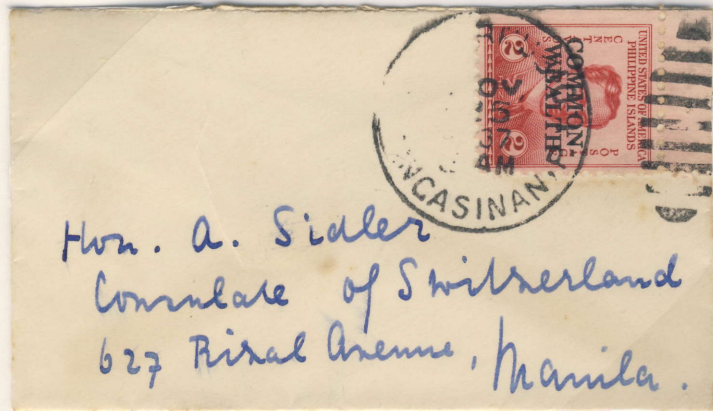 UNITED STATES OF AMERICA
PHILIPPINE ISLANDS
COMMON-
WEALTH
2 2
CENT S
POS
AM
NCASINAN, P
Hon. A. Sidler
Consulate of Switzerland
627 Rizal Avenue, Manila.